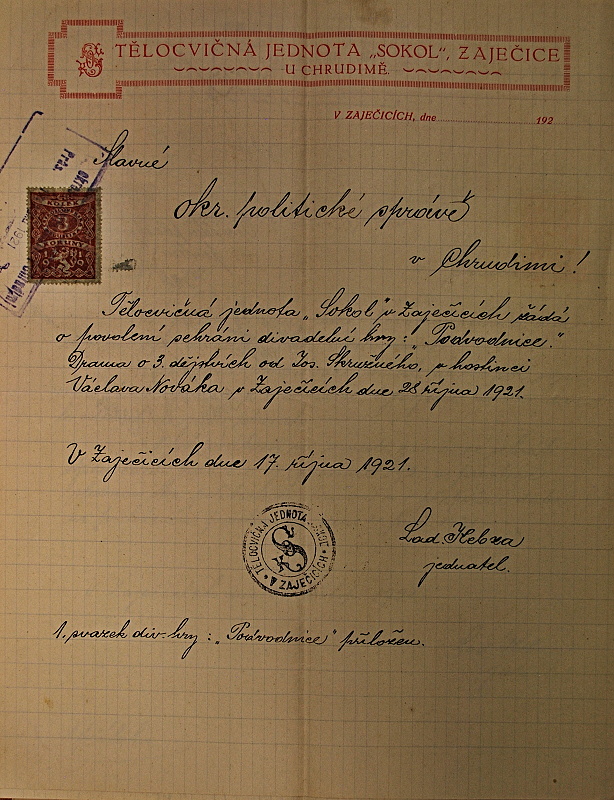 TĚLOCVIČNÁ JEDNOTA „SOKOL“, ZAJEČICE
U CHRUDIMĚ.
V ZAJEČICÍCH, dne 192
Slavné
okr. politické správě
v Chrudimi!
KOLEK
3
KORUNY
1921
Tělocvičná jednota „Sokol“ v Zaječicích žádá
o povolení sehrání divadelní hry: „Podvodnice.“
Drama o 3. dějstvích od Jos. Skružného, v hostinci
Václava Nováka v Zaječicích dne 28 října 1921.
V Zaječicích dne 17. října 1921.
TĚLOCVIČNÁ JEDNOTA SOKOL
V ZAJEČICÍCH
Lad. Kebza
jednatel.
1. svazek div. hry: „Podvodnice“ přiložen.